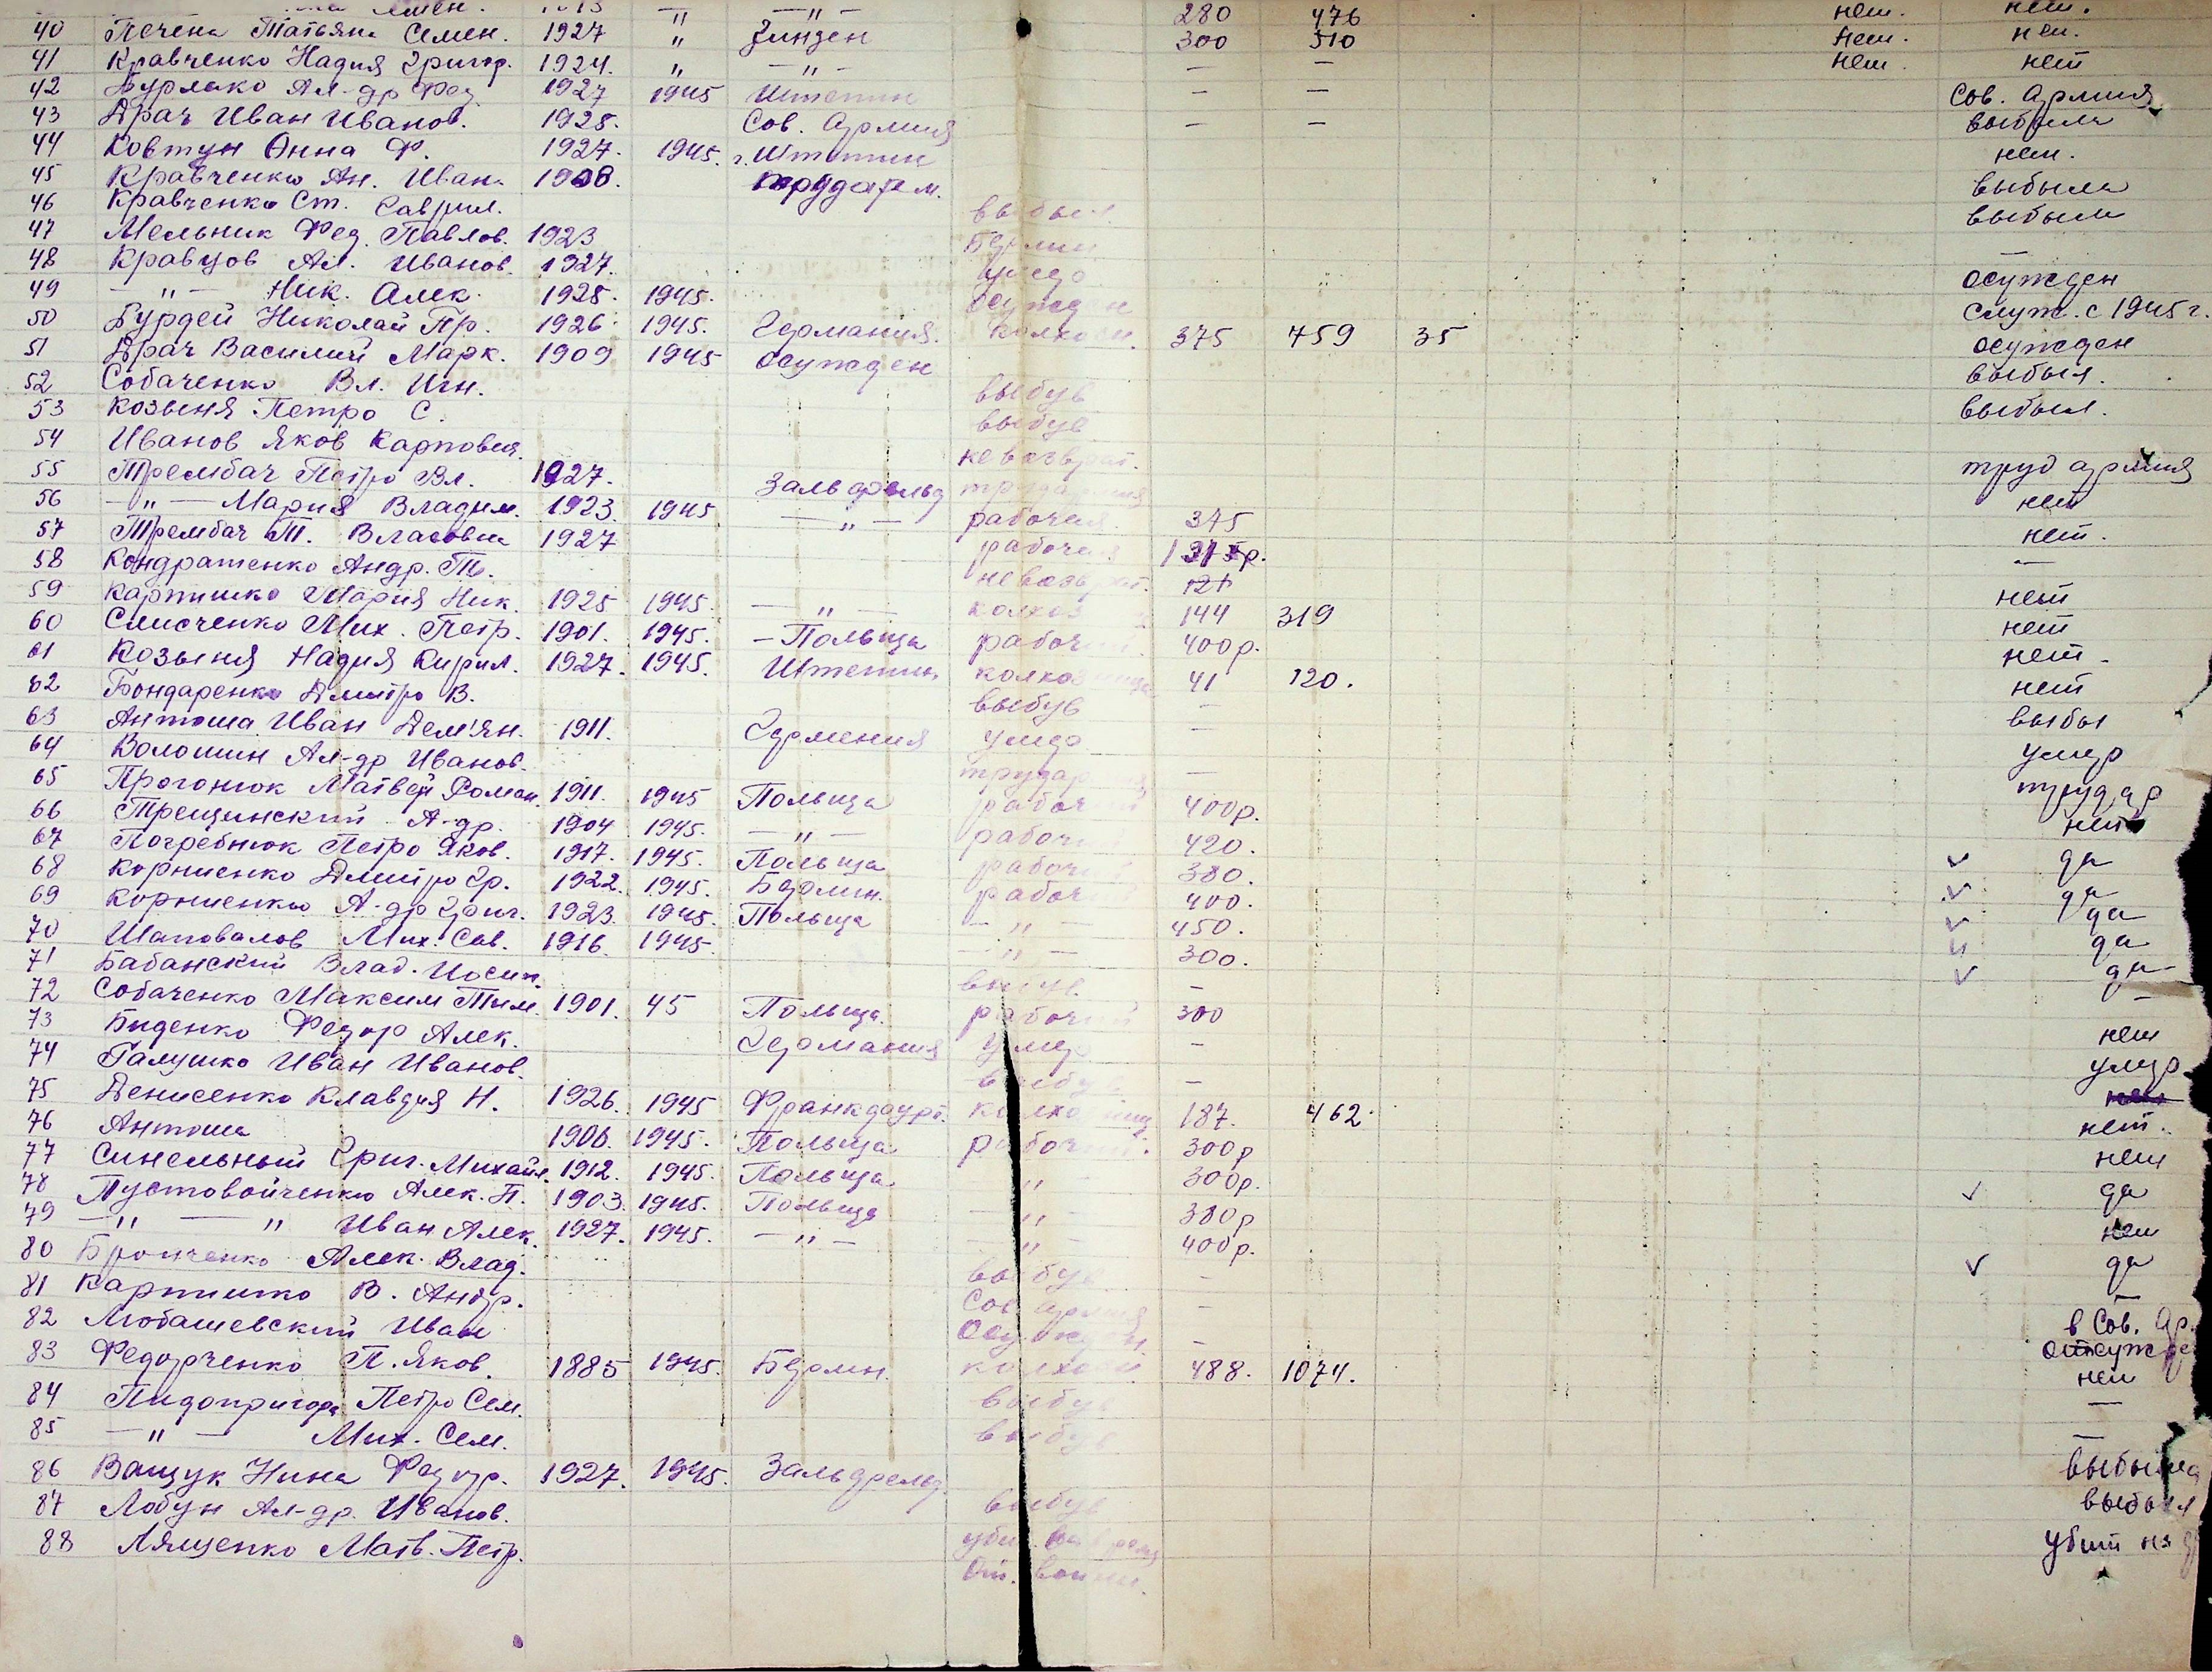 Семен. 1913 " — " — 280 476 нет. нет.
40 Печена Татьяна Семен. 1927 " Зинзен 300 510 нет. нет.
41 Кравченко Надия Григор. 1924. " — " — — — нет. нет
42 Бурлако Ал-др Фед. 1927 1945 Штетин — — Сов. армия
43 Драч Иван Иванов. 1925. Сов. Армия — — выбыла
44 Ковтун Анна Ф. 1927. 1945. г. Штетин нет.
45 Кравченко Ан. Иван. 1908. трударм. выбыла
46 Кравченко Ст. Саврил. выбыл. выбыли
47 Мельник Фед. Павлов. 1923 Берлин
48 Кравцов Ал. Иванов. 1927. осужден
49 — " — Ник. Алек. 1925. 1945. осужден служ. с 1945 г.
50 Бурдей Николай Пр. 1926 1945. Германия. 375 759 35 осужден
51 Драч Василий Марк. 1909 1945 осужден выбыл.
52 Собаченко Вл. Игн. выбув выбыл.
53 Козыня Петро С. выбув
54 Иванов Яков Карпович. невозврат. труд армия
55 Трембач Петро Вл. 1927. Зальфельд трудармия нет
56 — " — Мария Владим. 1923. 1945 — " — рабочая 375 нет.
57 Трембач Т. Власовна 1927 рабочая —
58 Кондратенко Андр. Т. невозврат. 121
59 Карпишко Мария Ник. 1925 1945. — " — колхоз 144 319 нет
60 Слисченко Мих. Петр. 1901. 1945. — Польща рабочий 400р. нет
61 Козыня Надия Кирил. 1927. 1945. Штетин колхозница 41 120. нет.
62 Бондаренко Дмитро В. выбув — нет
63 Антоша Иван Дем'ян. 1911. Германия умер — выбы
64 Волошин Ал-др Иванов. трудармия — умер
65 Прогонюк Матвей Роман. 1911. 1945 Польща рабочий 400р. трудар
66 Трещинский А-др. 1904 1945. — " — рабочи 420. нет
67 Погребнюк Петро Яков. 1917. 1945. Польща рабочий 380. ✓ да
68 Корниенко Дмитро Гр. 1922. 1945. Берлин. рабоч 400. ✓ да
69 Корниенко А-др Григ. 1923. 1945. Польща — " — 450. ✓ да
70 Шаповалов Мих. Сав. 1916 1945. — " — 300. ✓ да
71 Бабанский Влад. Иосип. выбув — ✓ да
72 Собаченко Максим Тим. 1901. 45 Польща. рабочий 300 —
73 Биденко Федор Алек. Германия умер — нет
74 Галушко Иван Иванов. выбув — умер
75 Денисенко Клавдия Н. 1926. 1945 Франкфурт. колхозниц 187. 462.
76 Антоша 1906. 1945. Польща рабочий. 300р нет.
77 Синельный Григ. Михайл. 1912. 1945. Польща — " — 300р. нет
78 Пустовойченко Алек. П. 1903. 1945. Польща — " — 380р ✓ да
79 — " — " Иван Алек. 1927. 1945. — " — " — 400р. нет
80 Бронченко Алек. Влад. выбув — ✓ да
81 Карпишко В. Андр. Сов. армия — —
82 Любашевский Иван Осужден — в Сов. Ар.
83 Федорченко П. Яков. 1885 1945. Берлин. колхоз 488. 1074. нет
84 Пидопригора Петро Сем. выбув —
85 — " — Мих. Сем. выбув —
86 Ващук Нина Федор. 1927. 1945. Зальфельд выбыла
87 Лобун Ал-др. Иванов. выбув выбыл
88 Лященко Матв. Петр. убит на
От. войни.